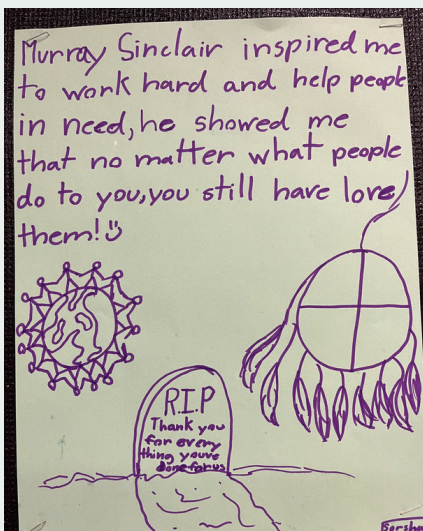 Murray Sinclair inspired me
to work hard and help people
in need, he showed me
that no matter what people
do to you, you still have love
them! :)
R.I.P
Thank you
for every
thing you've
done for us